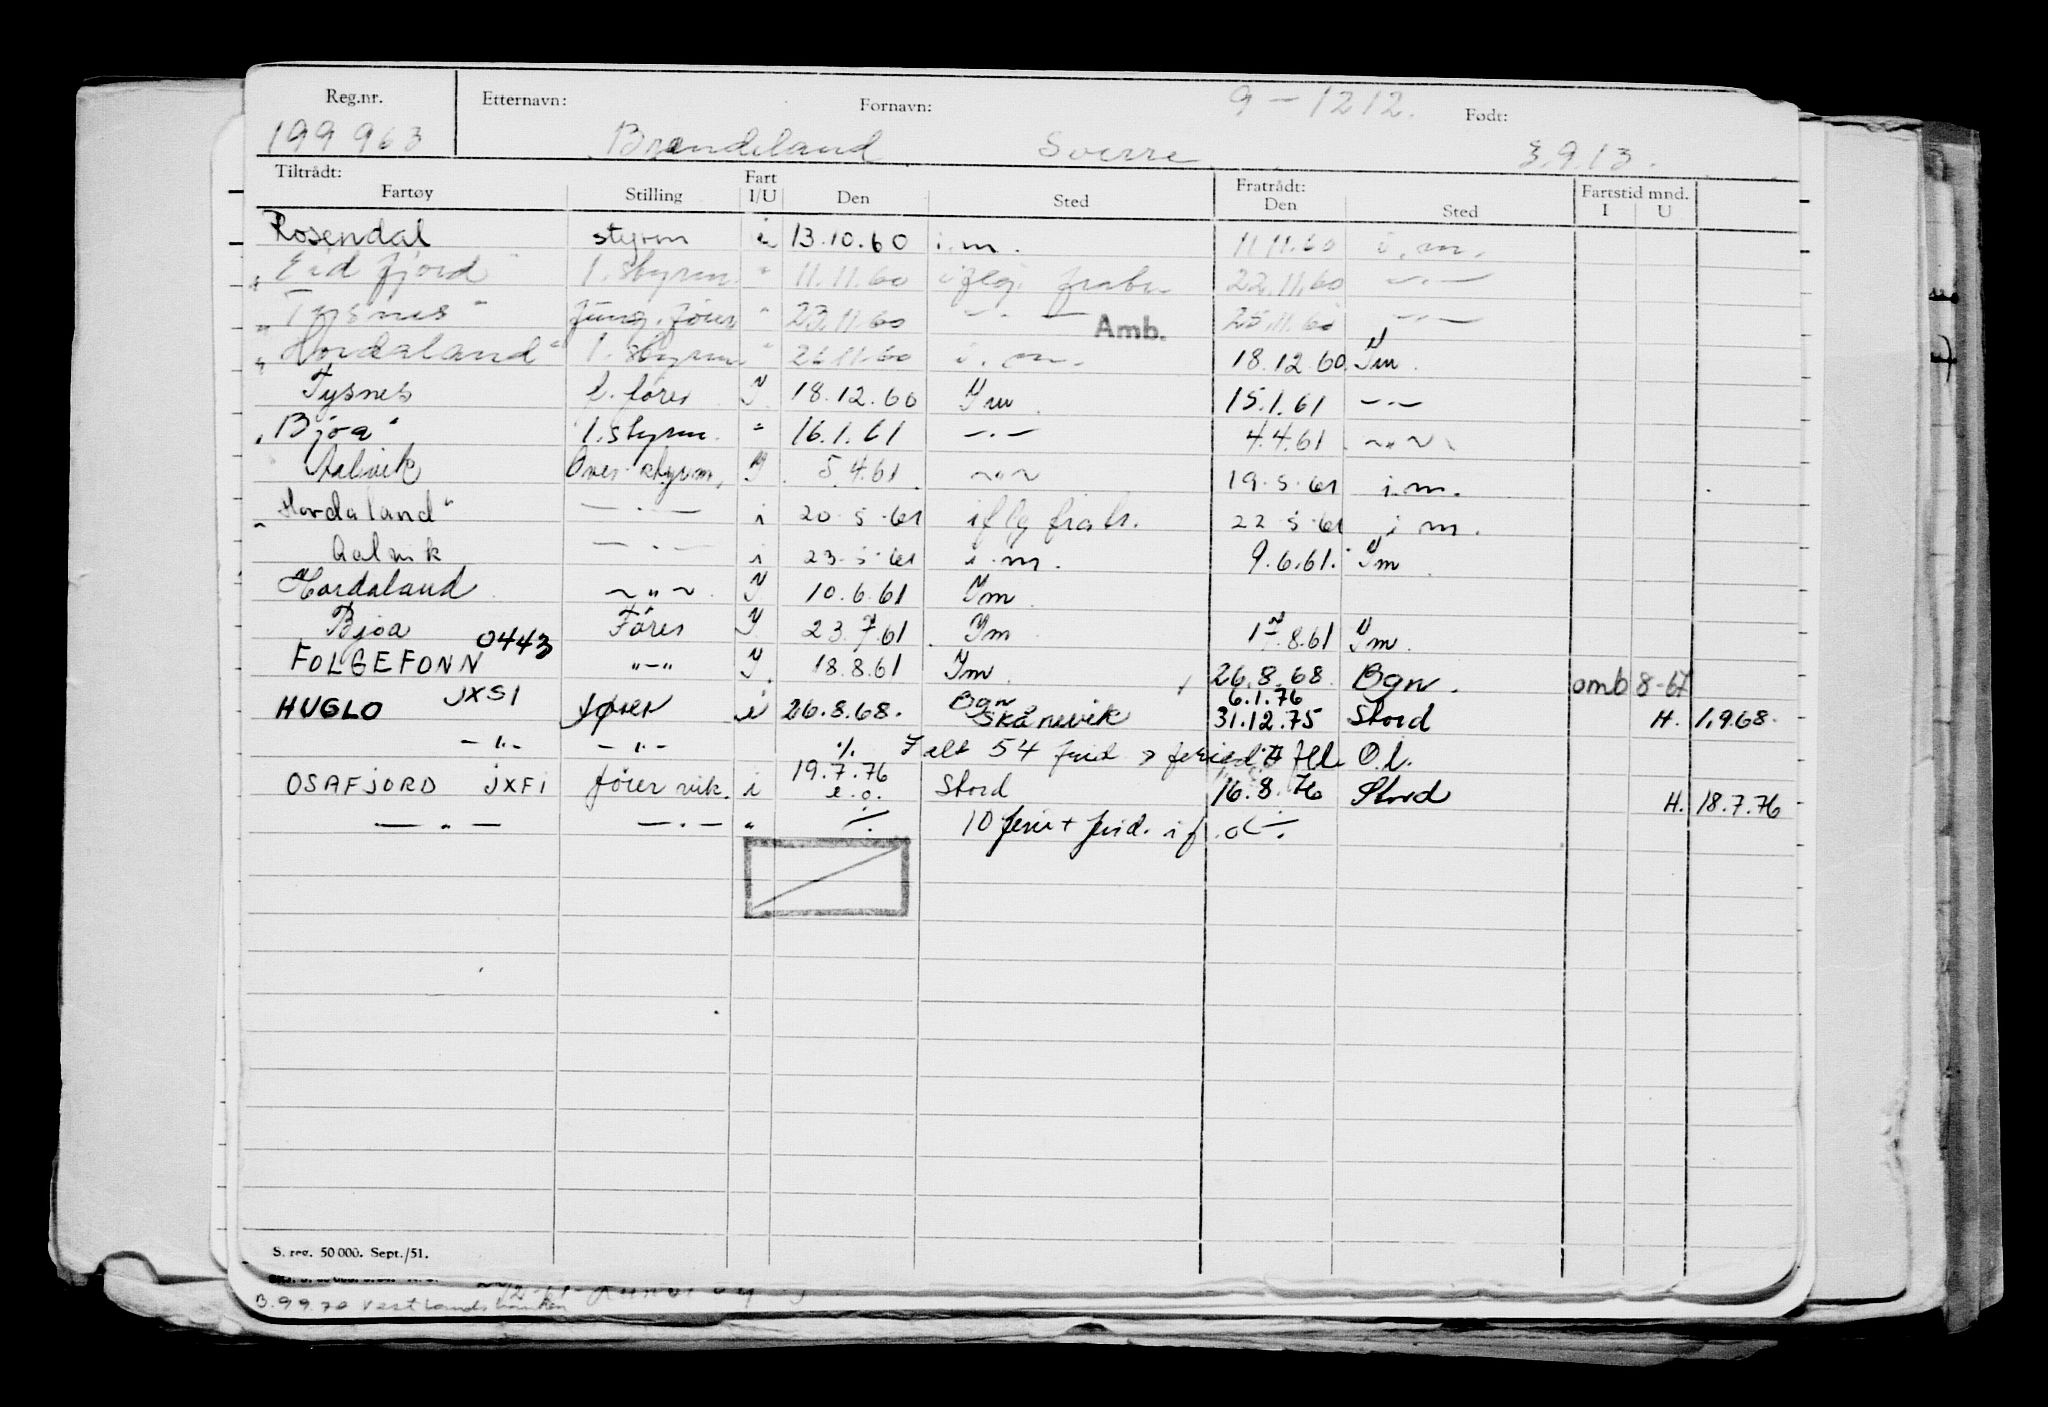 Reg.nr. Etternavn: Fornavn: 9 - 1212. Født:
199 963 Brandeland Sverre 3.9.13.
Tiltrådt: Fart Fratrådt: Fartstid mnd.
Fartøy Stilling I/U Den Sted Den Sted I U
Rosendal styrm i 13.10.60 i.m. 11.11.60 i.m.
"Eidfjord" 1. styrm " 11.11.60 iflg. frabr 22.11.60 —.—
"Tysnes" fung. fører " 23.11.60 —.— 25.11.60 —.—
Amb.
"Hordaland" 1. styrm " 26.11.60 i.m. 18.12.60 Ym.
Tysnes f. förer Y. 18.12.60 Ym. 15.1.61 —.—
"Bjoa" 1. styrm. " 16.1.61 —.— 4.4.61 ~"~
Aalvik Over styrm, Y. 5.4.61 ~"~ 19.5.61 i.m.
"Hordaland" —.— i 20.5.61 iflg frabr. 22.5.61 i m.
Aalvik —.— i 23.5.61 i.m. 9.6.61. Ym.
Hordaland ~"~ Y 10.6.61 Ym
Bjoa Förer Y. 23.7.61 Ym 17.8.61 Ym.
FOLGEFONN 0443 "—" Y. 18.8.61 Ym. 26.8.68. Bgn. omb 8-67
HUGLO JXSI fører i 26.8.68. Bgn 6.1.76
Skånevik 31.12.75 Stord H. 1.9.68.
—"— —"— ./. I alt 54 frid.
OSAFJORD JXFI förer vik. i 19.7.76 Stord 16.8.76 Stord H. 18.7.76
e.o.
—"— —.— " 10 ferie + frid. if.
S. reg. 50 000. Sept./51.
B.99.70 Vestlandsbanken